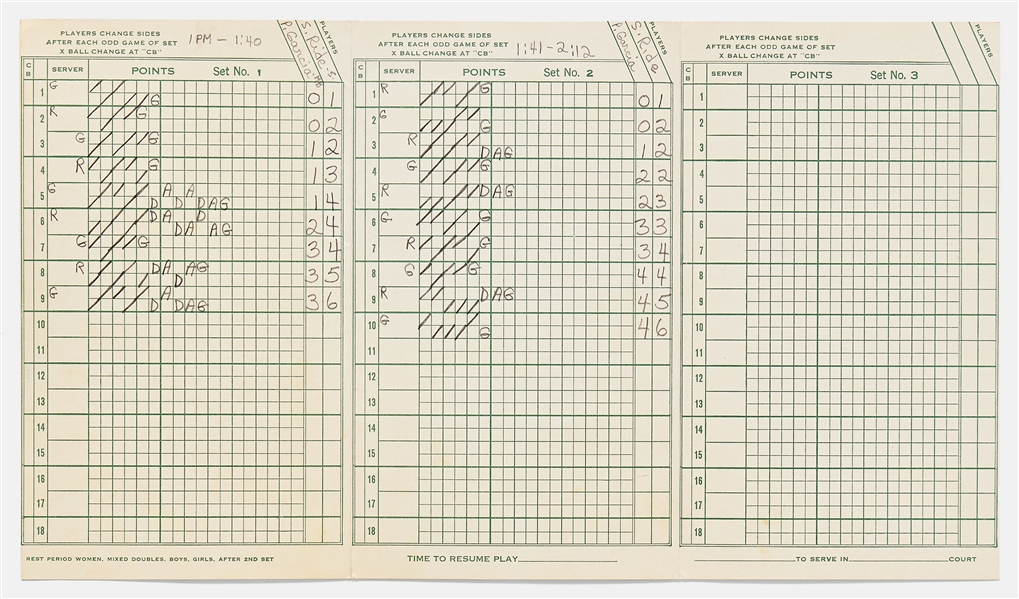 PLAYERS CHANGE SIDES
AFTER EACH ODD GAME OF SET
X BALL CHANGE AT "CB"
1 PM - 1:40
P. Garcia
S. Ride - S
PLAYERS
CB SERVER POINTS Set No. 1
1 G G 0 1
2 R G 0 2
3 G G 1 2
4 R G 1 3
5 G A A
D D DAG 1 4
6 R DA D
DA AG 2 4
7 G G 3 4
8 R DA AG
D 3 5
9 G A
D DAG 3 6
10
11
12
13
14
15
16
17
18
REST PERIOD WOMEN, MIXED DOUBLES, BOYS, GIRLS, AFTER 2ND SET
PLAYERS CHANGE SIDES
AFTER EACH ODD GAME OF SET
X BALL CHANGE AT "CB"
1:41-2:12
P. Garcia
S. Ride
PLAYERS
CB SERVER POINTS Set No. 2
1 R G 0 1
2 G G 0 2
3 R DAG 1 2
4 G G 2 2
5 R DAG 2 3
6 G G 3 3
7 R G 3 4
8 G G 4 4
9 R DAG 4 5
10 G G 4 6
11
12
13
14
15
16
17
18
TIME TO RESUME PLAY
PLAYERS CHANGE SIDES
AFTER EACH ODD GAME OF SET
X BALL CHANGE AT "CB"
PLAYERS
CB SERVER POINTS Set No. 3
1
2
3
4
5
6
7
8
9
10
11
12
13
14
15
16
17
18
TO SERVE IN COURT